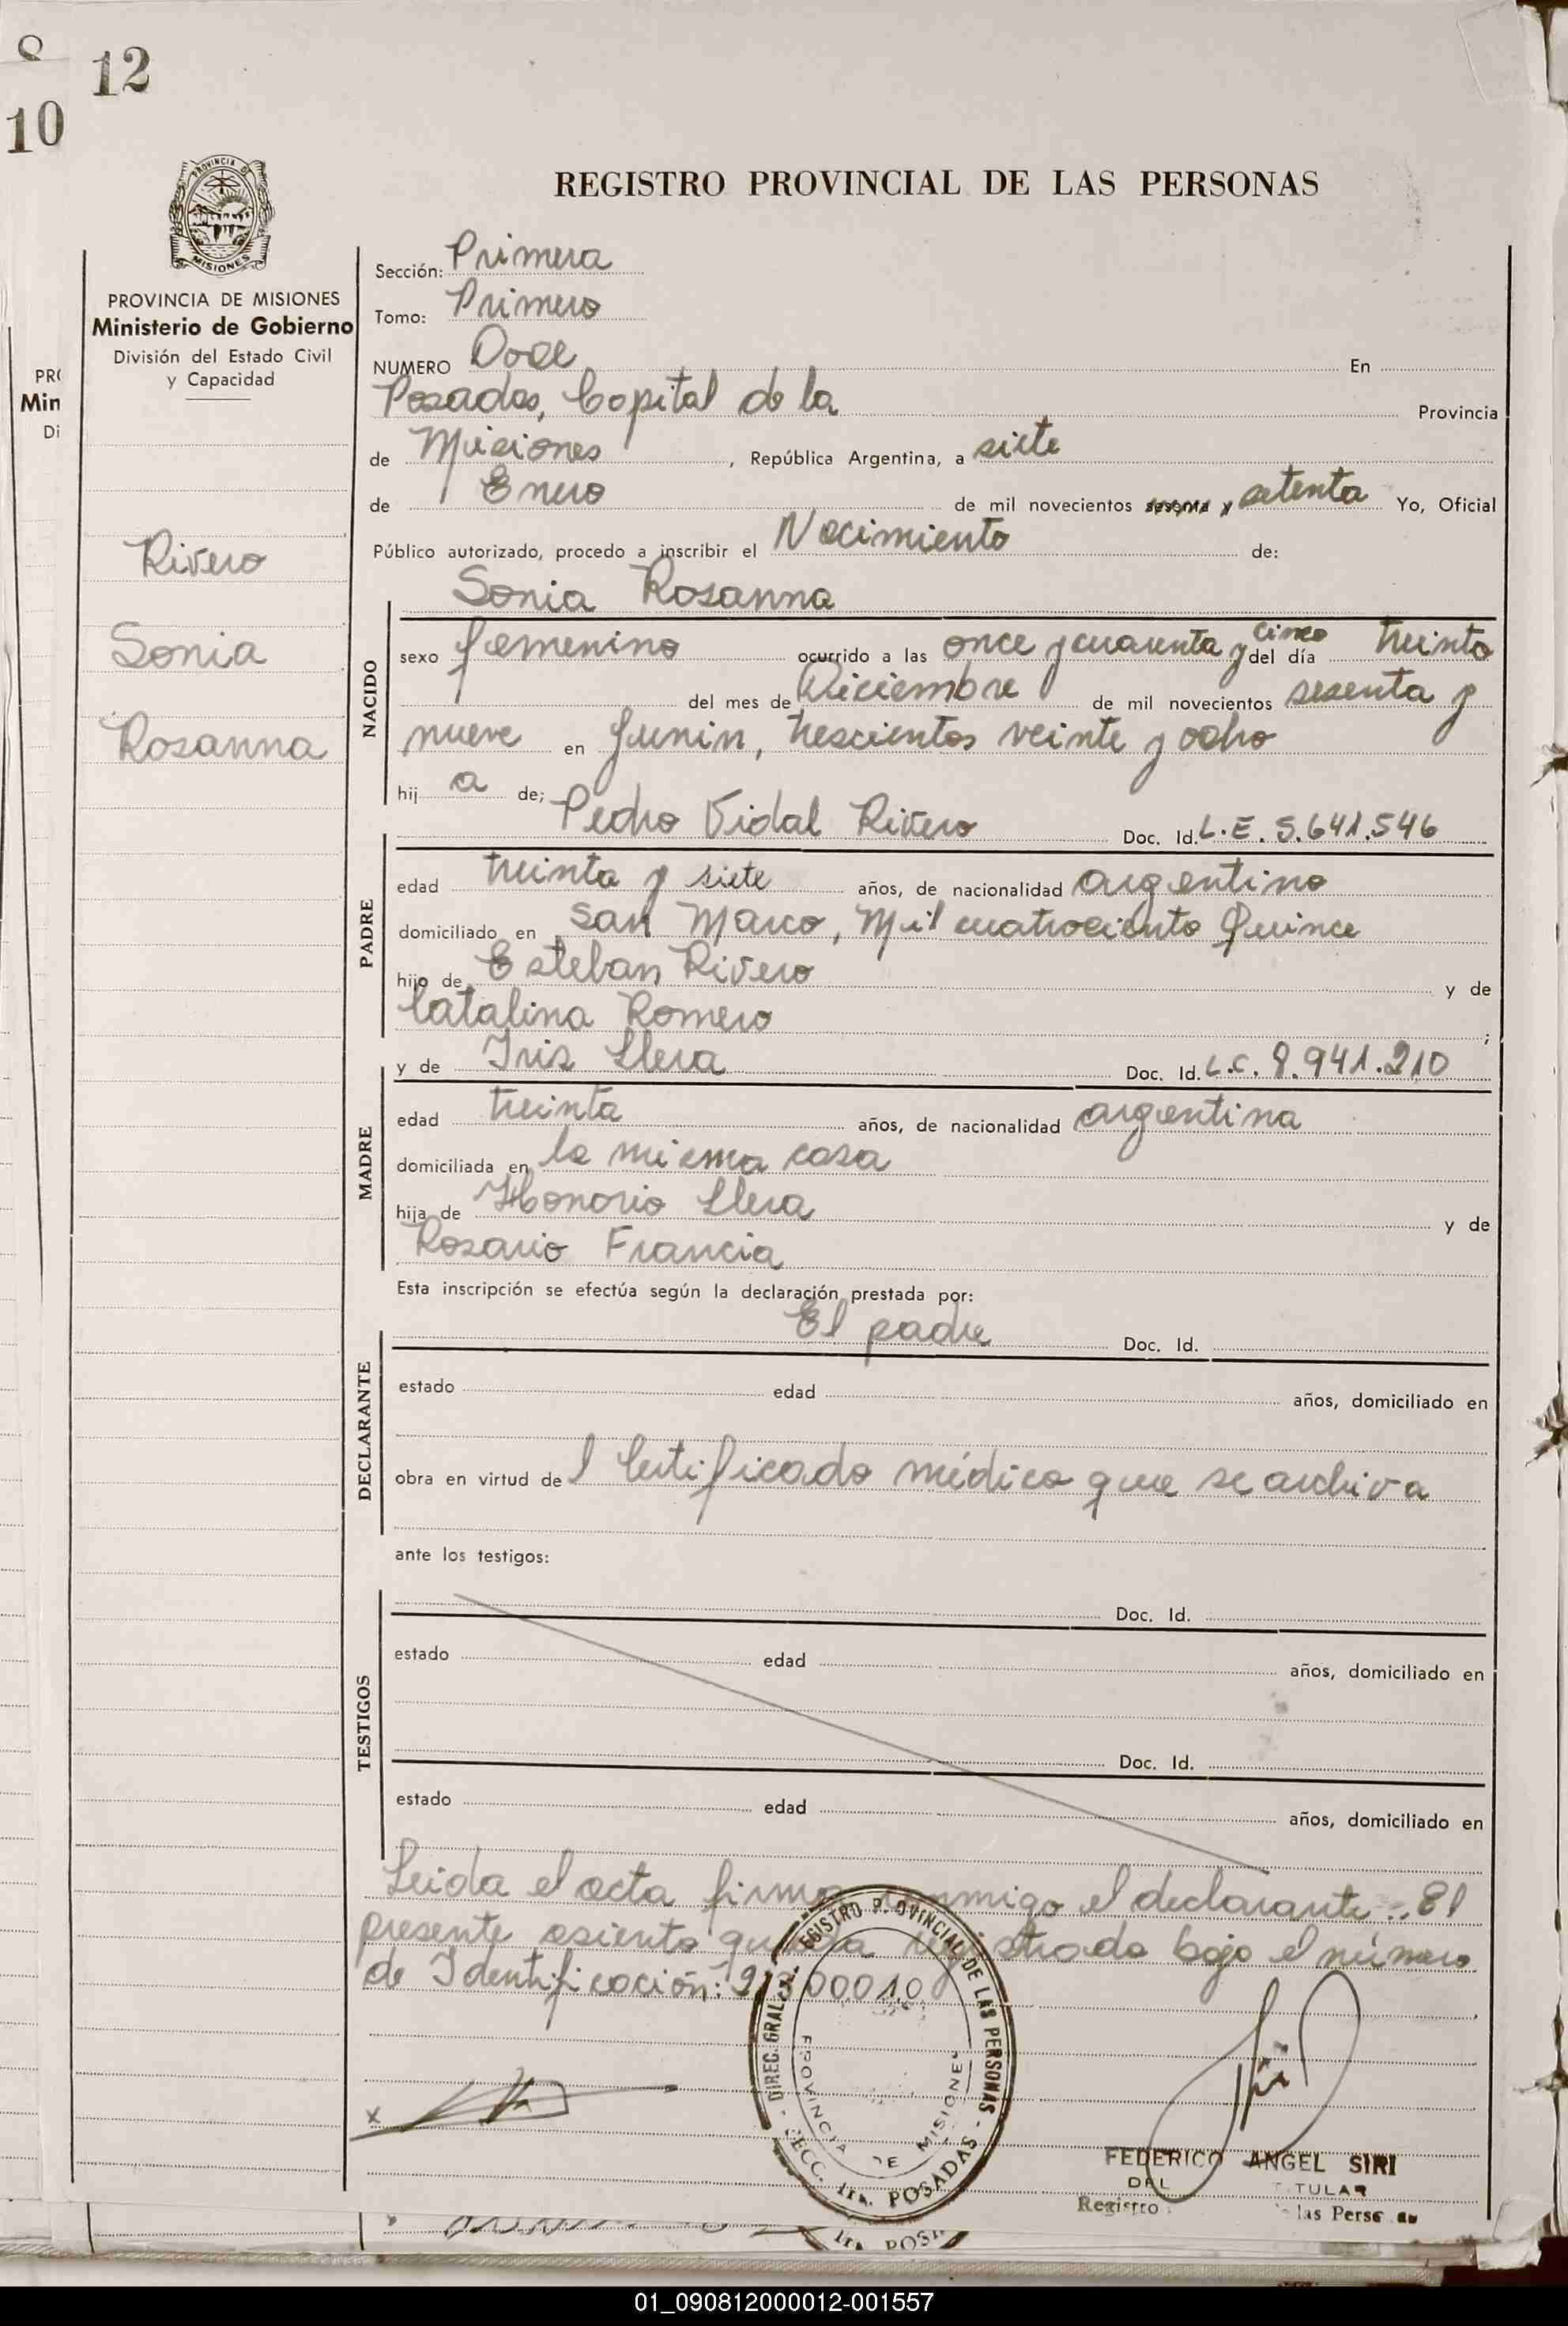 8
12
10
REGISTRO PROVINCIAL DE LAS PERSONAS
PROVINCIA DE MISIONES
Ministerio de Gobierno
División del Estado Civil
y Capacidad
Rivero
Sonia
Rosanna
Sección: Primera
Tomo: Primero
NUMERO Doce En
Posadas, Capital de la Provincia
de Misiones, República Argentina, a siete
de Enero de mil novecientos sesenta y setenta Yo, Oficial
Público autorizado, procedo a inscribir el Nacimiento de:
Sonia Rosanna
NACIDO
sexo femenino ocurrido a las once y cuarenta y cinco del día treinta
del mes de Diciembre de mil novecientos sesenta y
nueve en Junin, trescientos veinte y ocho
hij a de; Pedro Vidal Rivero Doc. Id. L.E. 5.641.546
PADRE
edad treinta y siete años, de nacionalidad argentino
domiciliado en San Marco, Mil cuatrociento Quince
hijo de Esteban Rivero y de
Catalina Romero ;
y de Iris Llera Doc. Id. L.C. 8.941.210
MADRE
edad treinta años, de nacionalidad argentina
domiciliada en la misma casa
hija de Honorio Llera y de
Rosario Francia
Esta inscripción se efectúa según la declaración prestada por:
El padre Doc. Id.
DECLARANTE
estado edad años, domiciliado en
obra en virtud del Certificado médico que se archiva
ante los testigos:
Doc. Id.
TESTIGOS
estado edad años, domiciliado en
Doc. Id.
estado edad años, domiciliado en
Leida el acta firma conmigo el declarante.. El
presente asiento queda registrado bajo el número
de Identificación:
DIREC. GRAL. REGISTRO PROVINCIAL DE LAS PERSONAS - SECC. 1ra. POSADAS -
PROVINCIA DE MISIONES
x
FEDERICO ANGEL SIRI
TITULAR
Registro las Persc
PR(
Min
Di
1ra. POSA
01_090812000012-001557